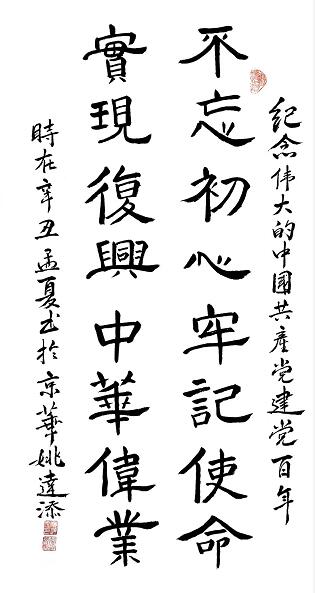 纪念伟大的中國共產党建党百年
不忘初心牢記使命
實現復興中華偉業
時在辛丑孟夏书於京華姚達添